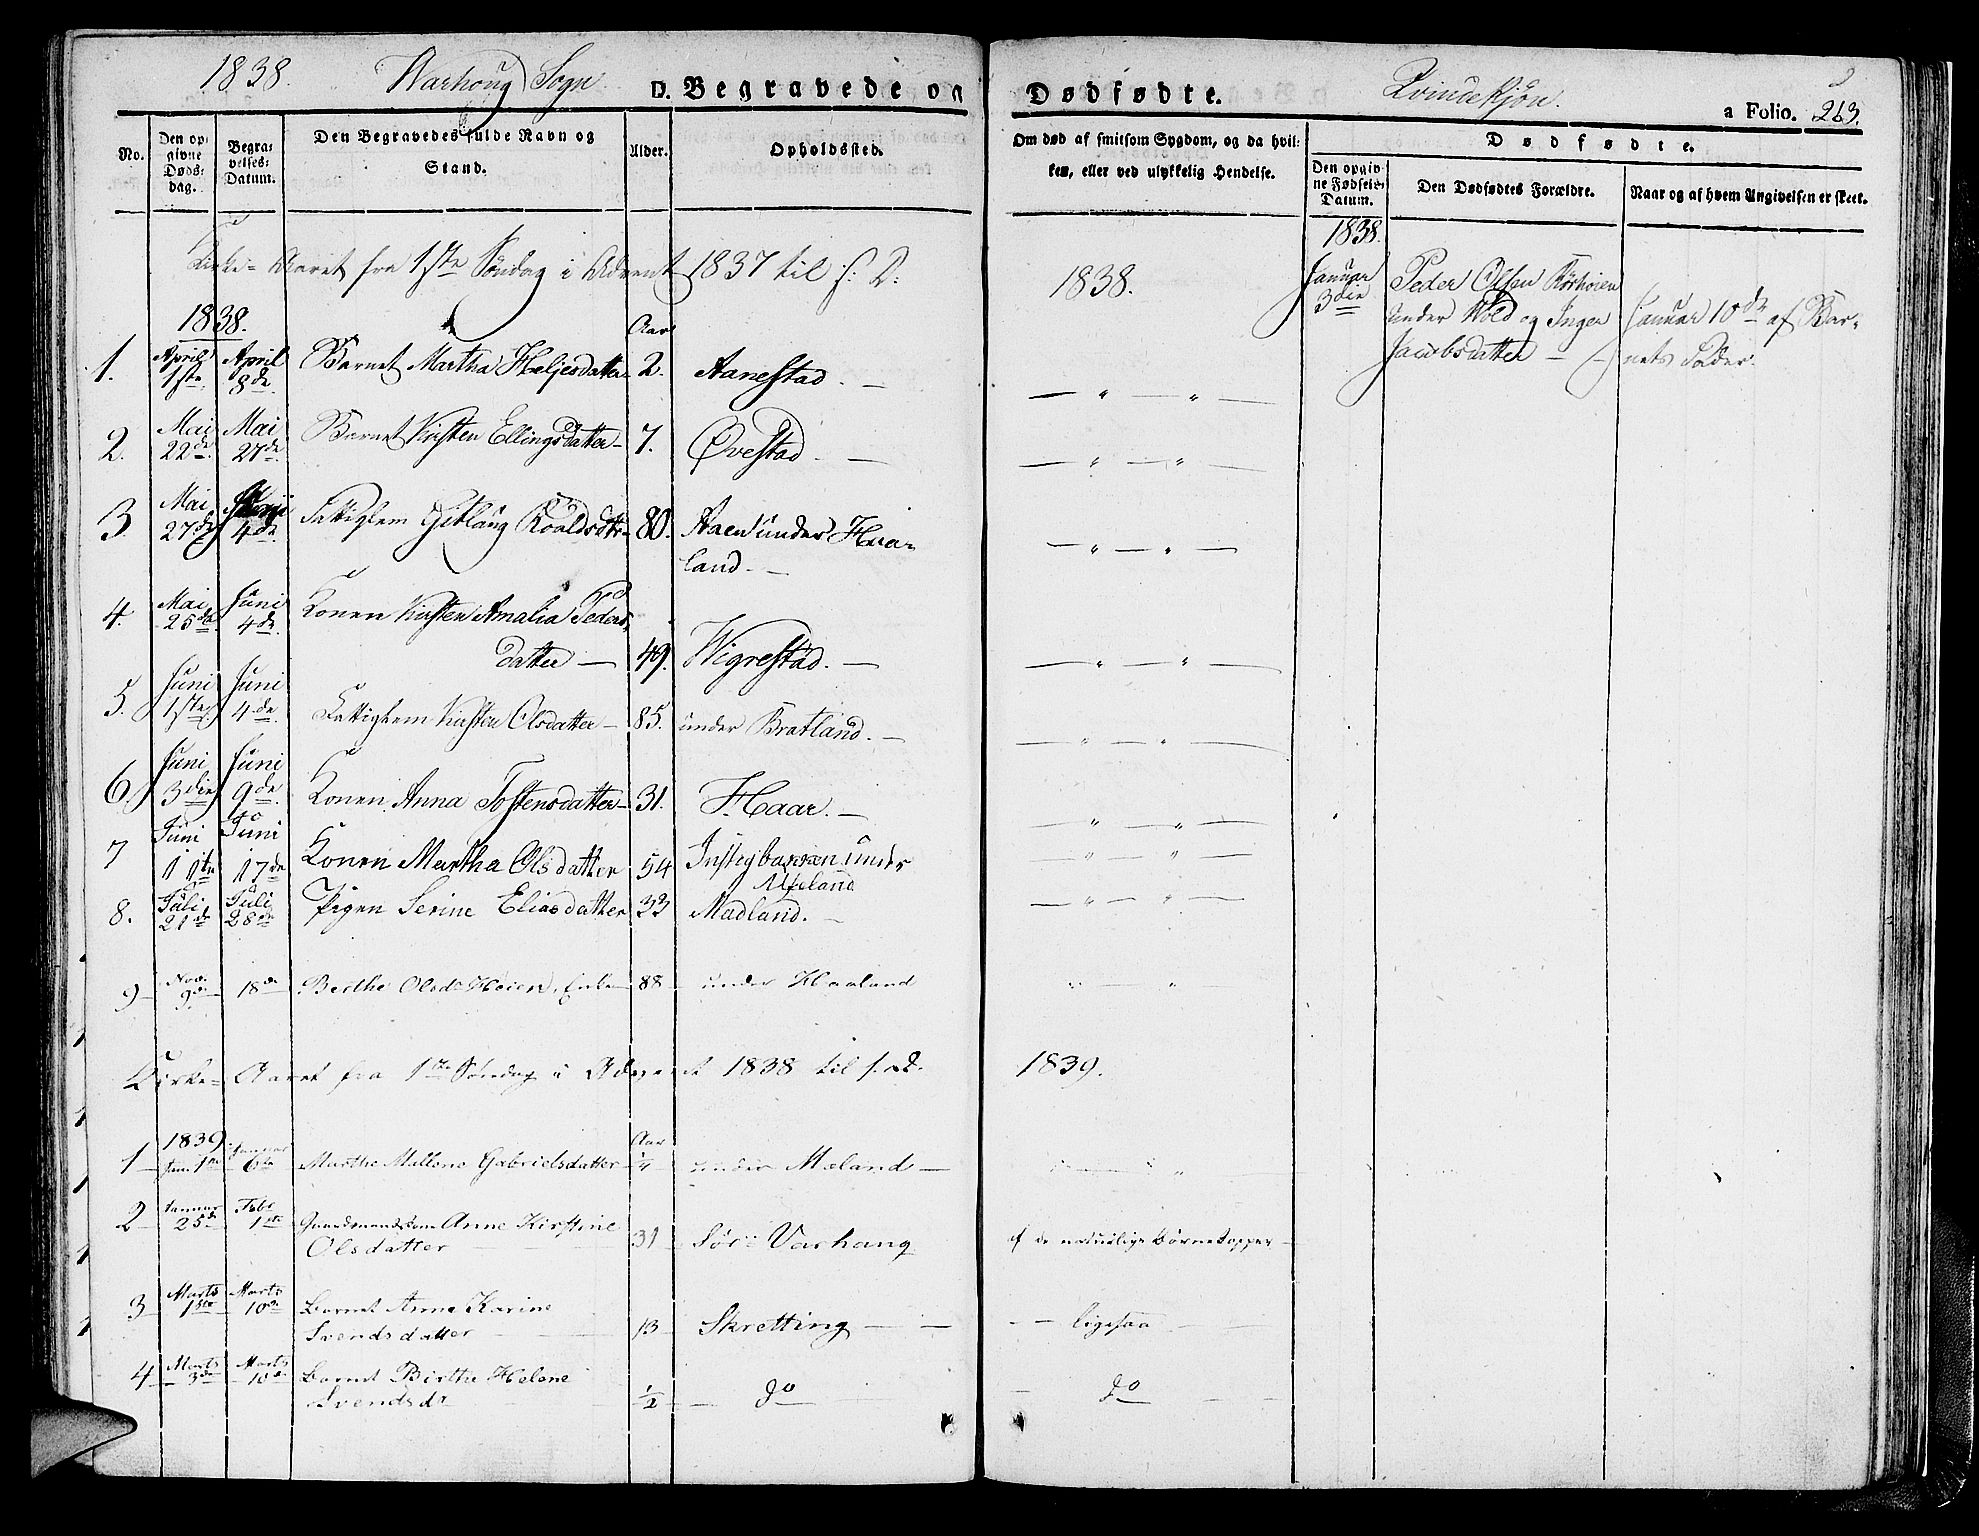 1838. Warhoug Sogn. D. Begravede og Dødfødte. Qvindekjøn. a Folio. 263.
No. Den opgivne Dødsdag. Begravelses-Datum. Den Begravedes fulde Navn og Stand. Alder. Opholdssted. Om død af smitsom Sygdom, og da hvilken, eller ved ulykkelig Hendelse. Dødfødte.
Den opgivne Fødsels-Datum. Den Dødfødtes Forældre. Naar og af hvem Angivelsen er skeet.
Kirke-Aaret fra 1ste Søndag i Advent 1837 til s: D: 1838.
1838.
Januar 3die Peder Olsen
under Wold og Inger
Jacobsdatter —
Januar 10de af Bar-
nets Fader.
1838. Aar
1. April 1ste April 8de Barnet Martha Heljesdatter 2. Aanestad. — — " — " —
2. Mai 22de Mai 27de Barnet Kirsten Ellingsdatter — 7. Øvestad. — — " — " —
3. Mai 27de Junii 4de Fattiglem Gitlaug Roaldsdtr — 80. Aaen under Haar-
land. — — " — " —
4. Mai 25de Juni 4de Konen Kirsten Amalia Peders-
datter — 49. Wigrestad. — — " — " —
5. Juni 1ste Juni 4de Fattiglem Kirsten Olsdatter — 85. under Bratland. — — " — " —
6. Juni 3die Juni 9de Konen Anna Tostensdatter — 31. Haar. — — " — " —
7 Juni 11te Juni 17de Konen Martha Olsdatter 54 under — " — " —
8. Juli 21de Juli 28de Pigen Serine Eliasdatter 33 Madland. — — " — " —
9 — Nov. 9de 18de Berthe Olsdr Høien, Enke — 88 — under Haaland " — "
Kirke-Aaret fra 1ste Søndag i Advent 1838 til s. D. 1839.
1839 Aar
1 — Jan. 1ste Januar 6te Marthe Mallene Gabrielsdatter 1/4 under Mæland — "
2 — Januar 25de Febr 1ste Gaardmandskone Anne Kirstine
Olsdatter 31 Sør Varhaug af de naturlige Børnekopper —
3 — Marts 1ste Marts 10de Barnet Anne Karine
Svendsdatter 13 — Skretting — — — — ligesaa
4 — Marts 3de Marts 10de Barnet Birthe Helene
Svendsdr 1/2 — do — do